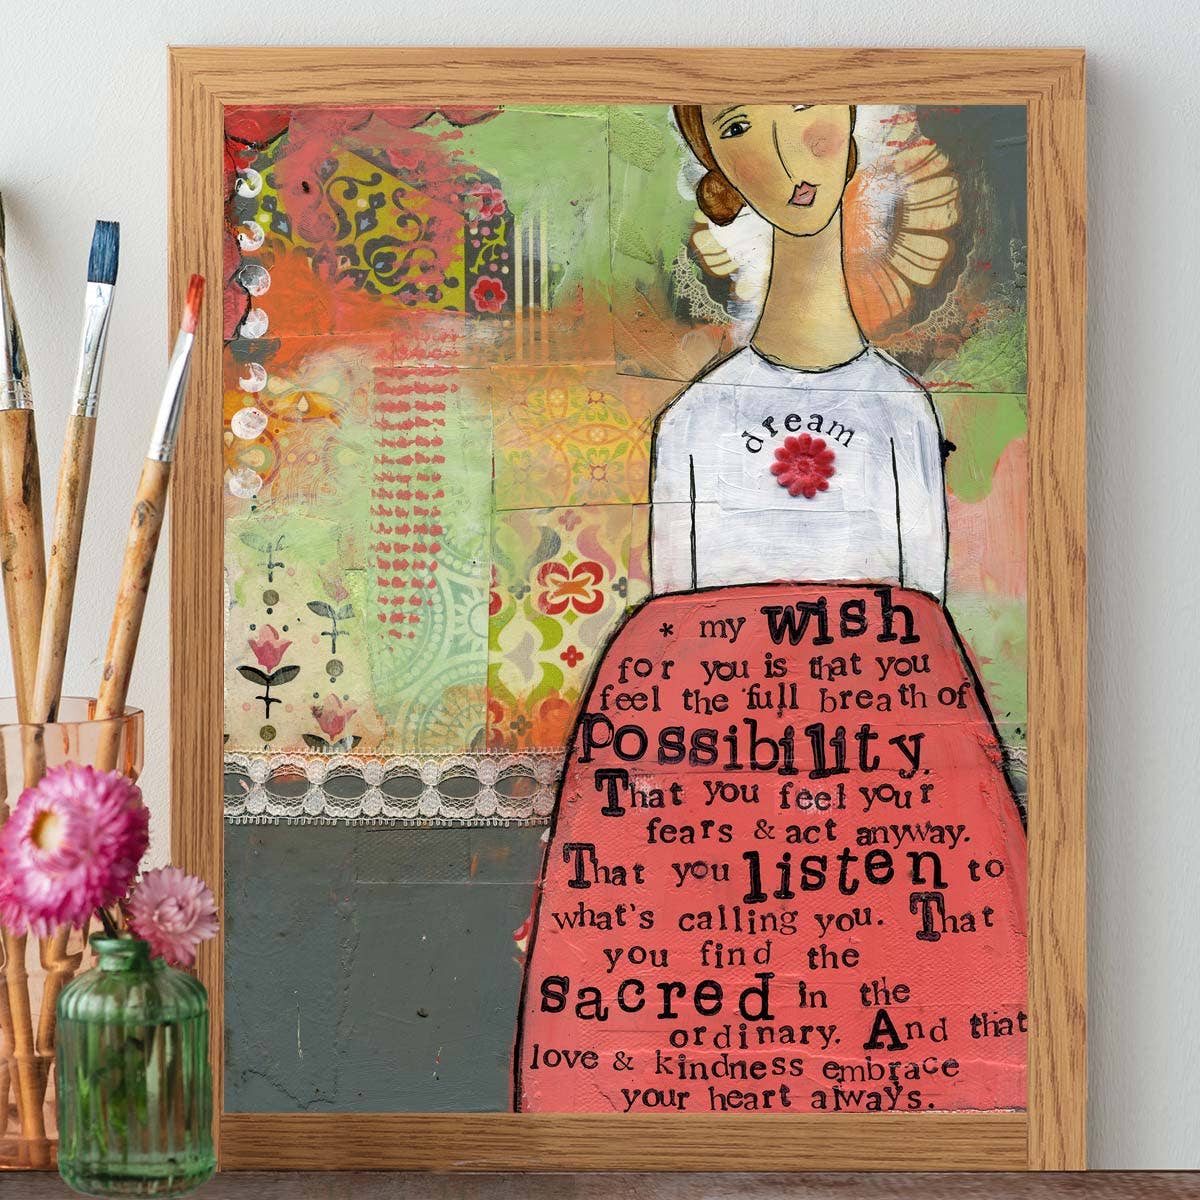 dream
* my wish
for you is that you
feel the full breath of
Possibility.
That you feel your
fears & act anyway.
That you listen to
what's calling you. That
you find the
sacred in the
ordinary. And that
love & kindness embrace
your heart always.